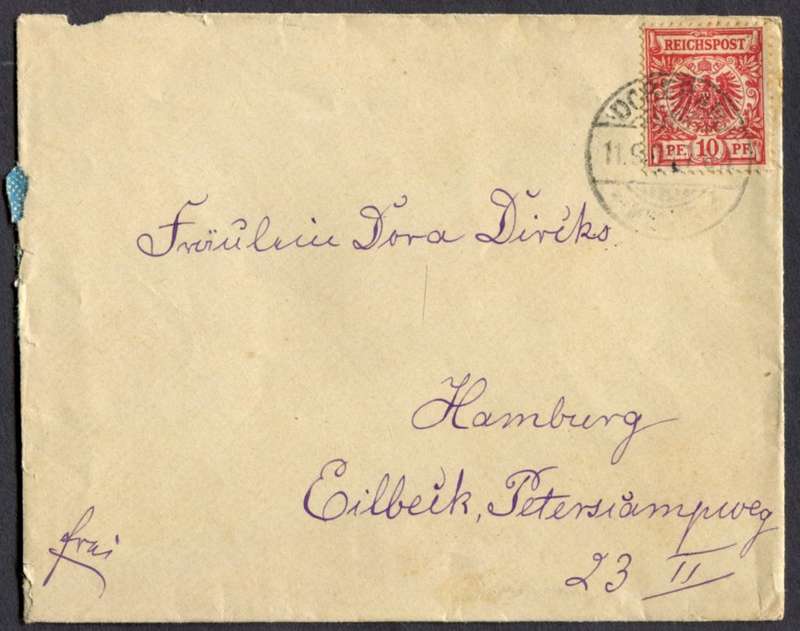 REICHSPOST
PF. 10 PF.
Fräulein Dora Dircks
Hamburg
Eilbeck, Peterscampweg
23 II
frei